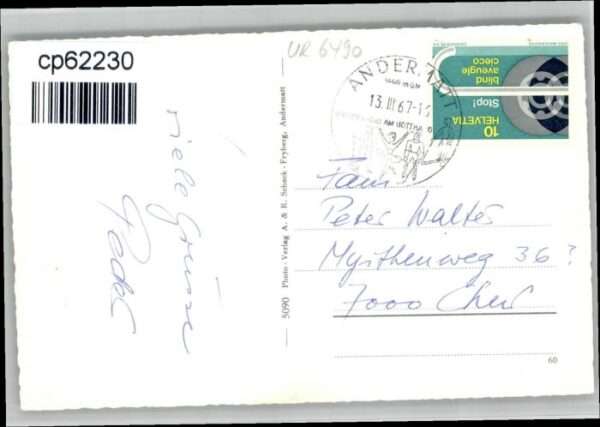 cp62230
UR 6490
ANDERMATT
13.III.67-1
blind
aveugle
cieco
Stop!
HELVETIA
10
Viele Grüsse
5090 Photo-Verlag A. & R. Schock-Fryberg, Andermatt
Fam.
Peter Walter
Mythenweg 36?
7000 Chur
60